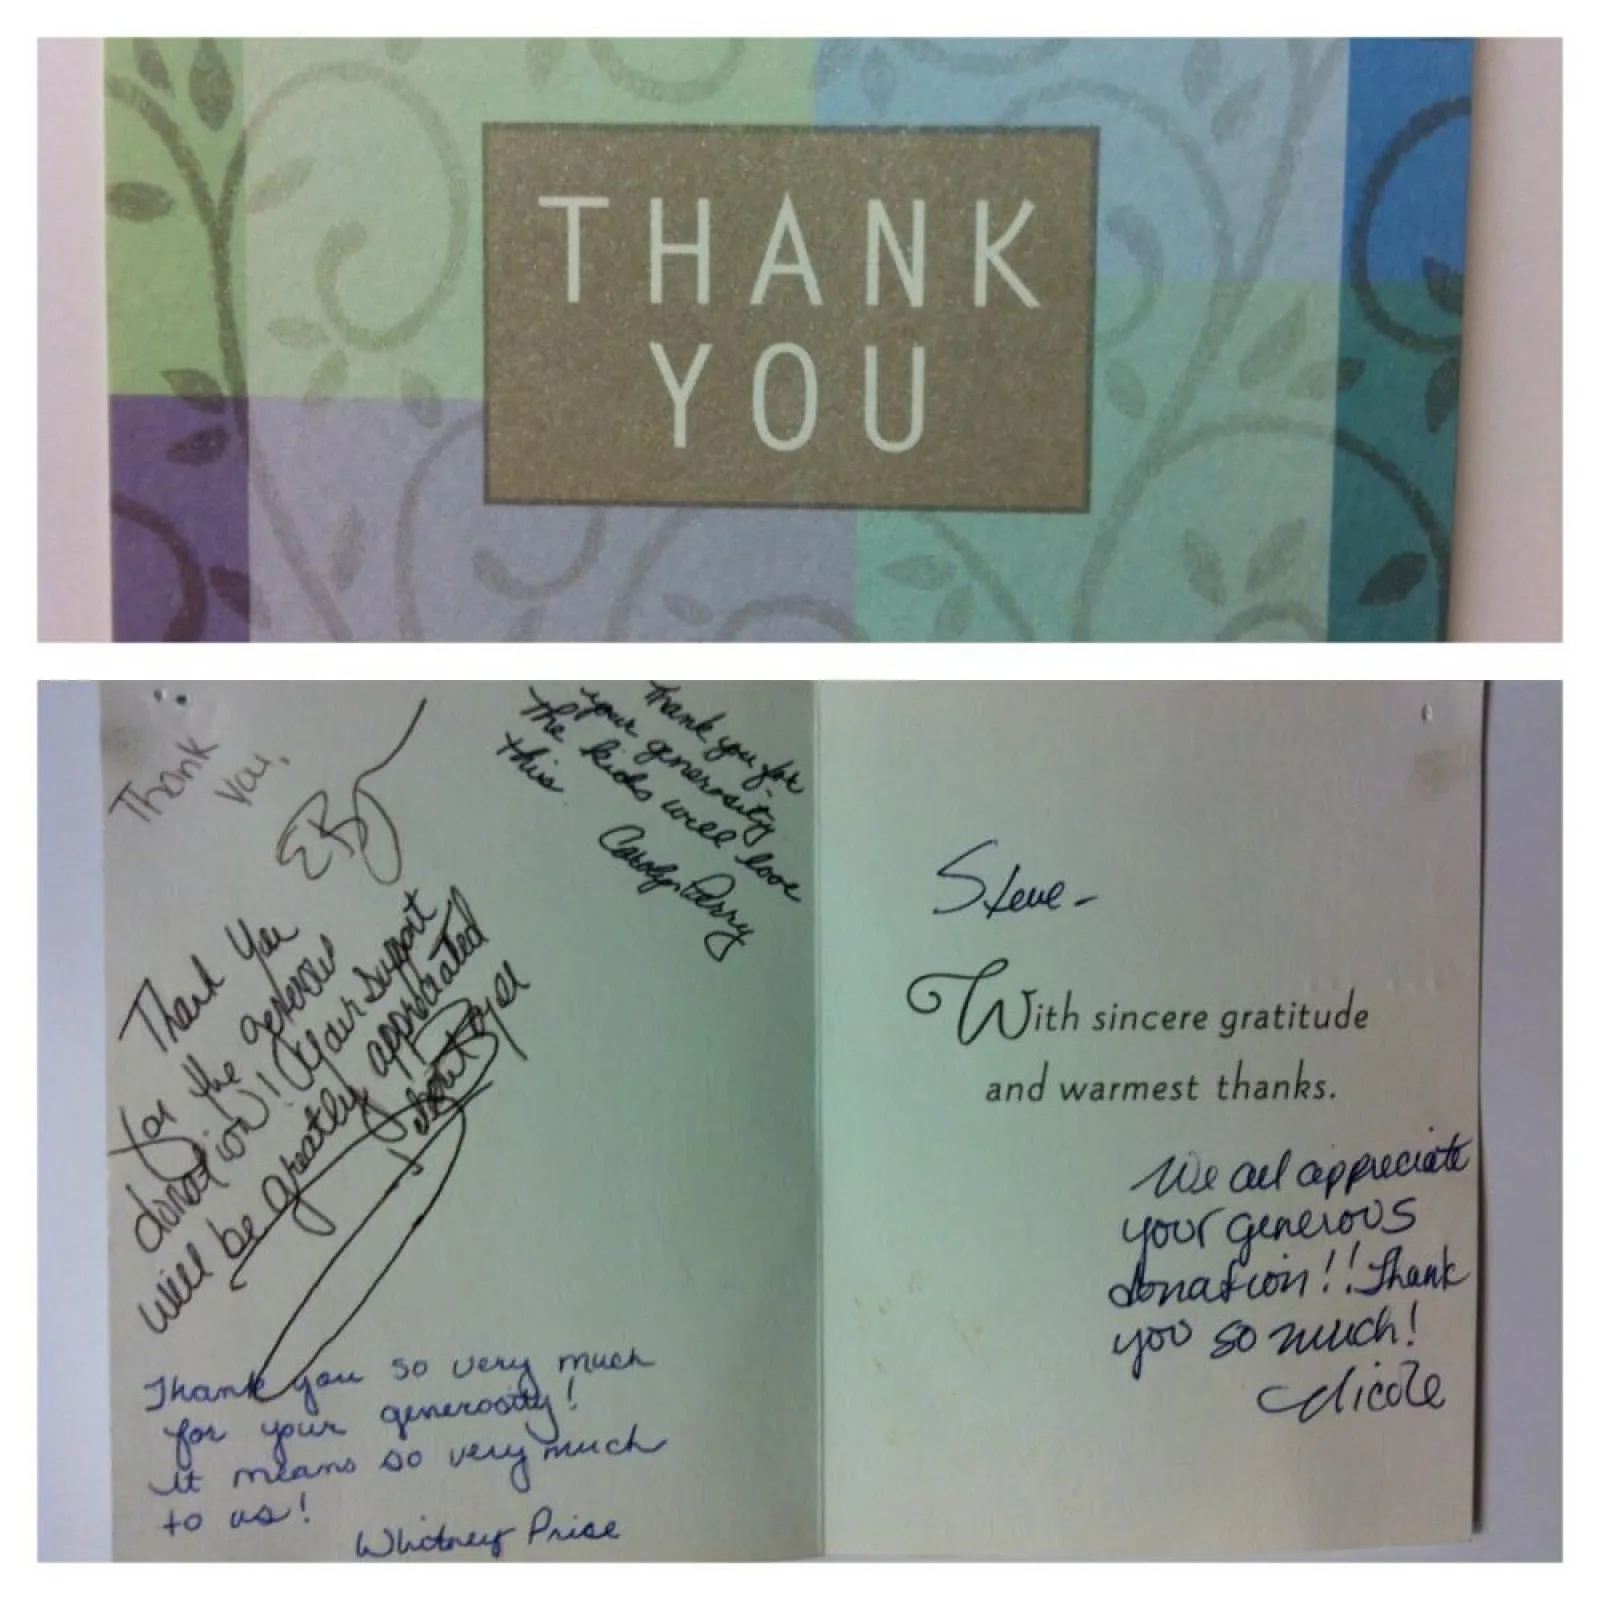 THANK
YOU
Thank
you,
Thank you for
your generosity.
The kids will love
this.
Carolyn Perry
Thank You
for the generous
donation! Your support
will be greatly appreciated
Thank you so very much
for your generosity!
It means so very much
to us!
Whitney Price
Steve-
With sincere gratitude
and warmest thanks.
We all appreciate
your generous
donation!! Thank
you so much!
Nicole